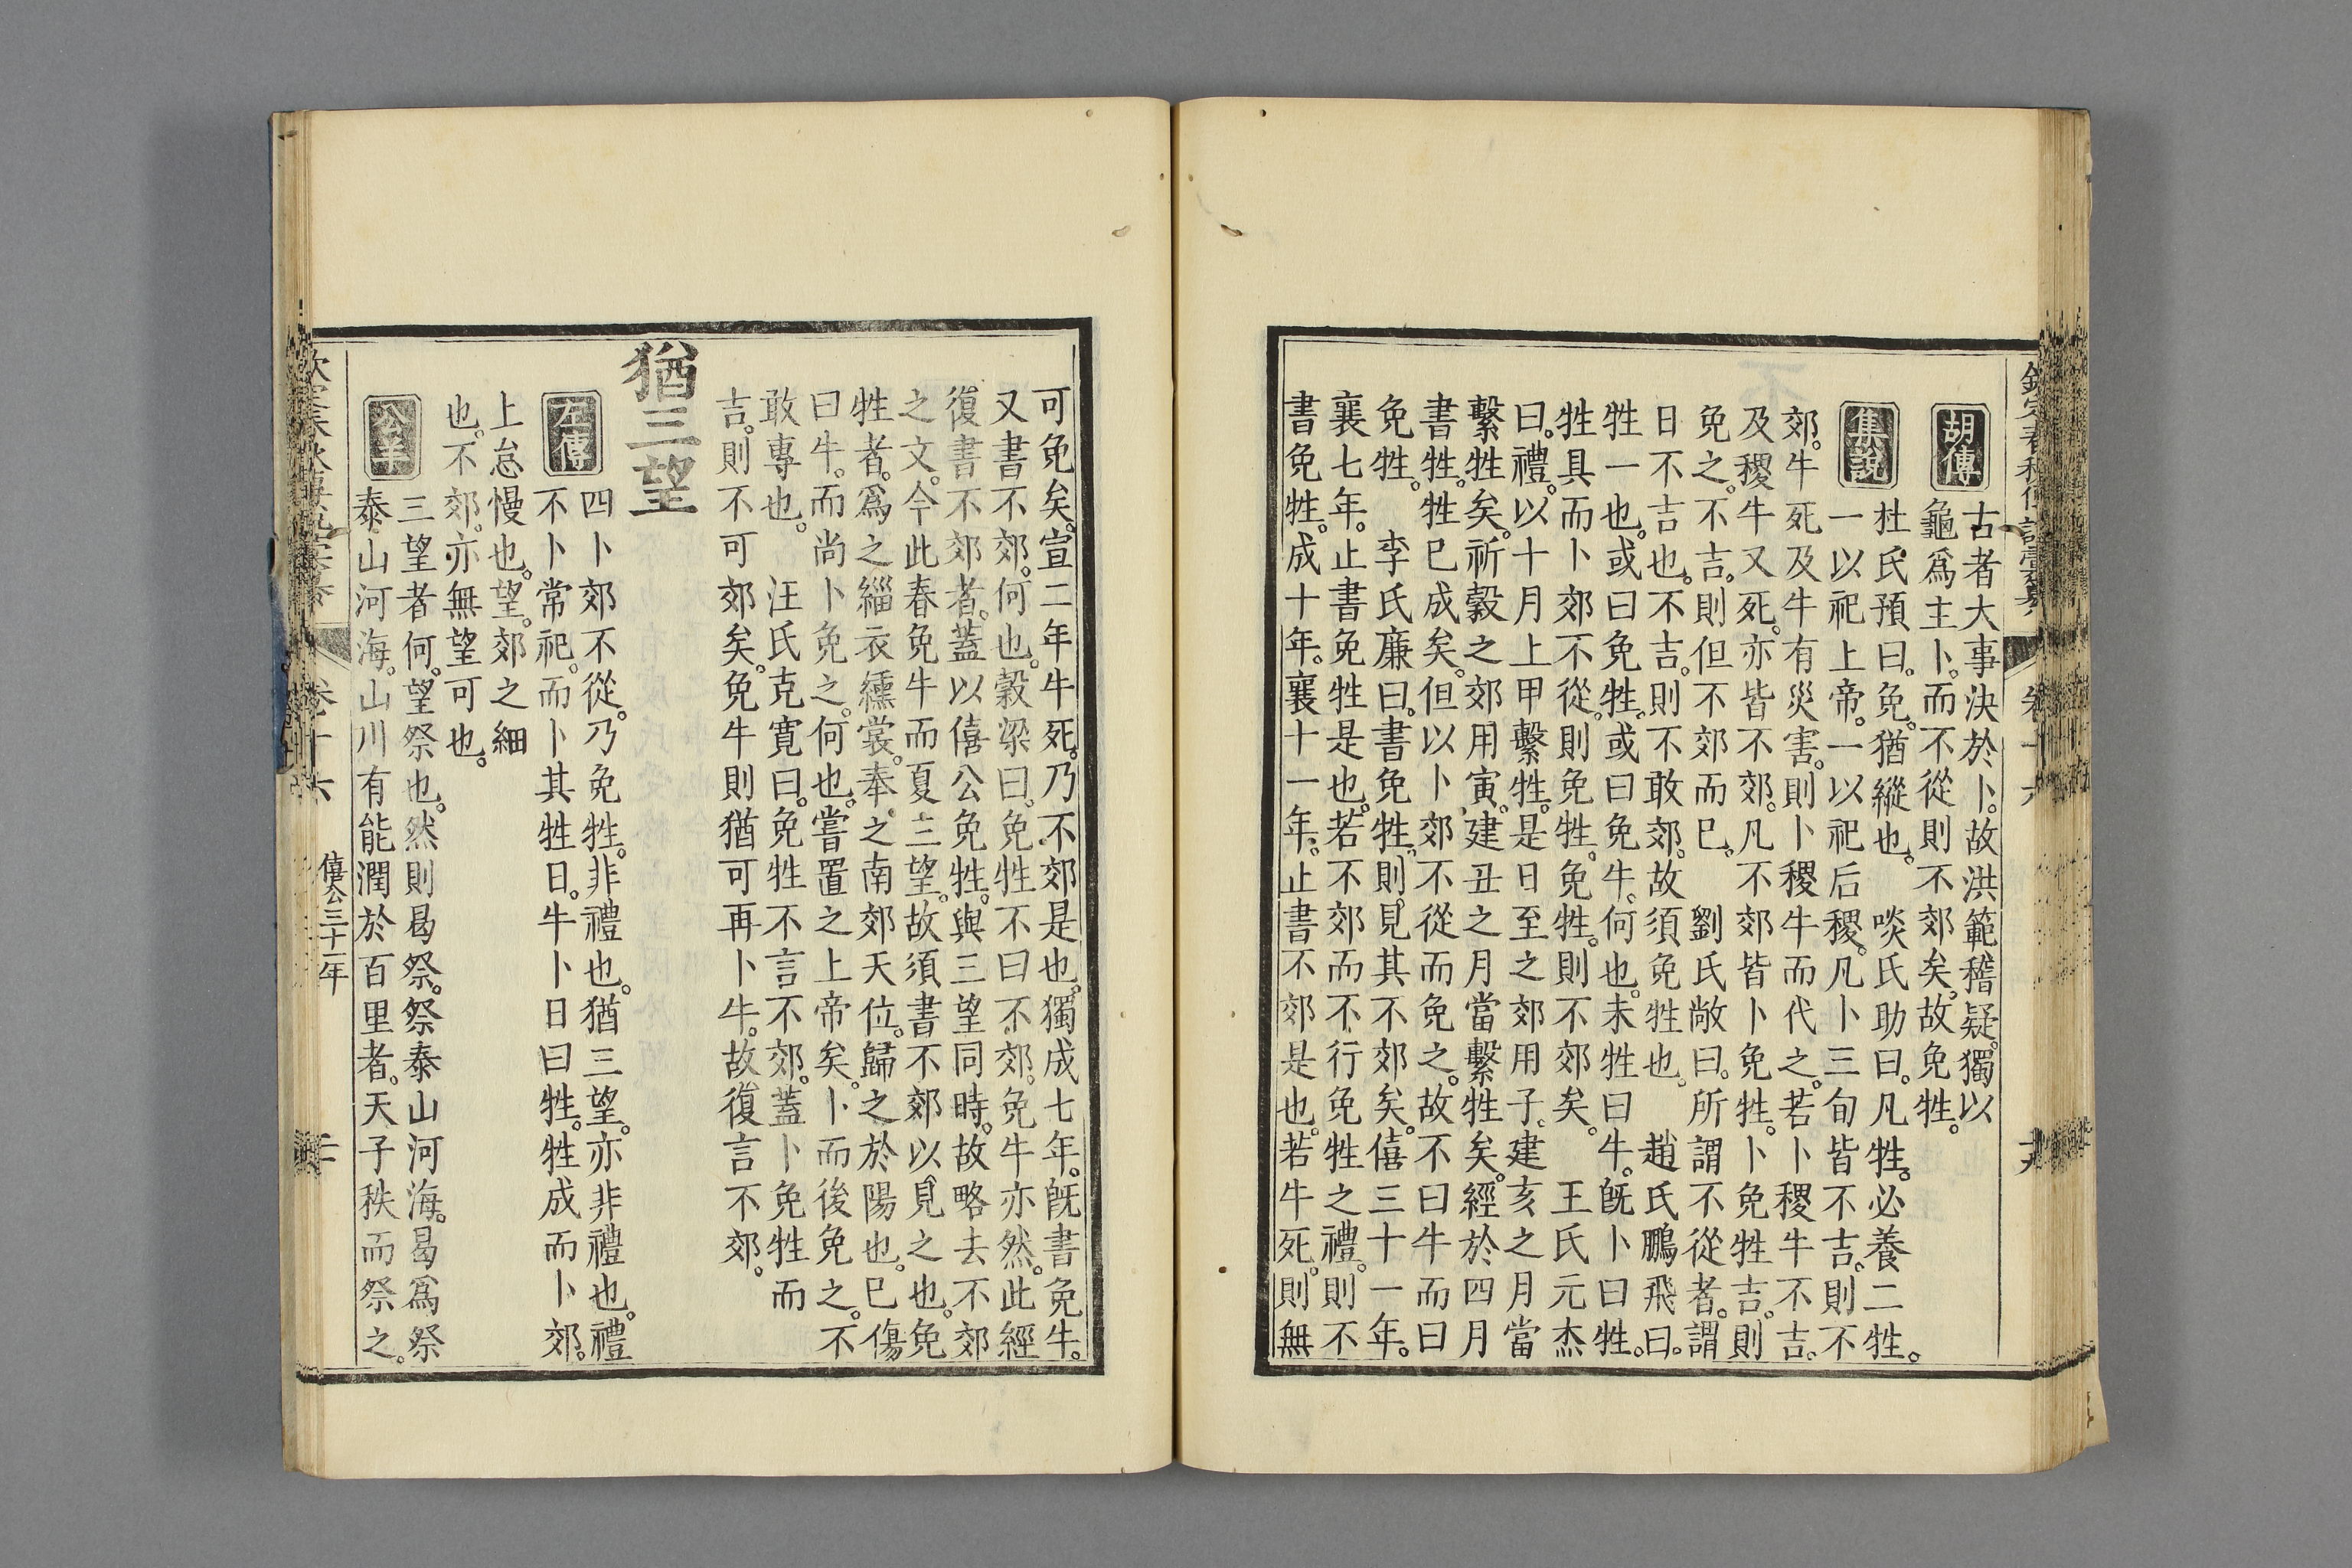 胡傳
古者大事決於卜。故洪範稽疑。獨以
龜爲主卜。而不從則不郊矣。故免牲。
集說
杜氏預曰。免。猶縱也。 啖氏助曰。凡牲。必養二牲。
一以祀上帝。一以祀后稷。凡卜三旬皆不吉。則不
郊。牛死及牛有災害。則卜稷牛而代之。若卜稷牛不吉。
及稷牛又死。亦皆不郊。凡不郊皆卜免牲。卜免牲吉。則
免之。不吉。則但不郊而已。 劉氏敞曰。所謂不從者。謂
日不吉也。不吉。則不敢郊。故須免牲也。 趙氏鵬飛曰。
牲一也。或曰免牲。或曰免牛。何也。未牲曰牛。旣卜曰牲。
牲具而卜郊不從。則免牲。免牲。則不郊矣。 王氏元杰
曰。禮。以十月上甲繫牲。是日至之郊用子。建亥之月當
繫牲矣。祈糓之郊用寅。建丑之月當繫牲矣。經於四月
書牲。牲已成矣。但以卜郊不從而免之。故不曰牛而曰
免牲。 李氏廉曰。書免牲。則見其不郊矣。僖三十一年。
襄七年。止書免牲是也。若不郊而不行免牲之禮。則不
書免牲。成十年。襄十一年。止書不郊是也。若牛死。則無
可免矣。宣二年牛死。乃不郊是也。獨成七年。旣書免牛。
又書不郊。何也。穀梁曰。免牲不曰不郊。免牛亦然。此經
復書不郊者。蓋以僖公免牲。與三望同時。故略去不郊
之文。今此春免牛而夏三望。故須書不郊以見之也。免
牲者。爲之緇衣纁裳。奉之南郊天位。歸之於陽也。已傷
曰牛。而尚卜免之。何也。嘗置之上帝矣。卜而後免之。不
敢專也。 汪氏克寬曰。免牲不言不郊。蓋卜免牲而
吉。則不可郊矣。免牛則猶可再卜牛。故復言不郊。
猶三望
左傳
四卜郊不從。乃免牲。非禮也。猶三望。亦非禮也。禮
不卜常祀。而卜其牲日。牛卜日曰牲。牲成而卜郊。
上怠慢也。望。郊之細
也。不郊。亦無望可也。
公羊
三望者何。望祭也。然則曷祭。祭泰山河海。曷爲祭
泰山河海。山川有能潤於百里者。天子秩而祭之。
僖公三十一年